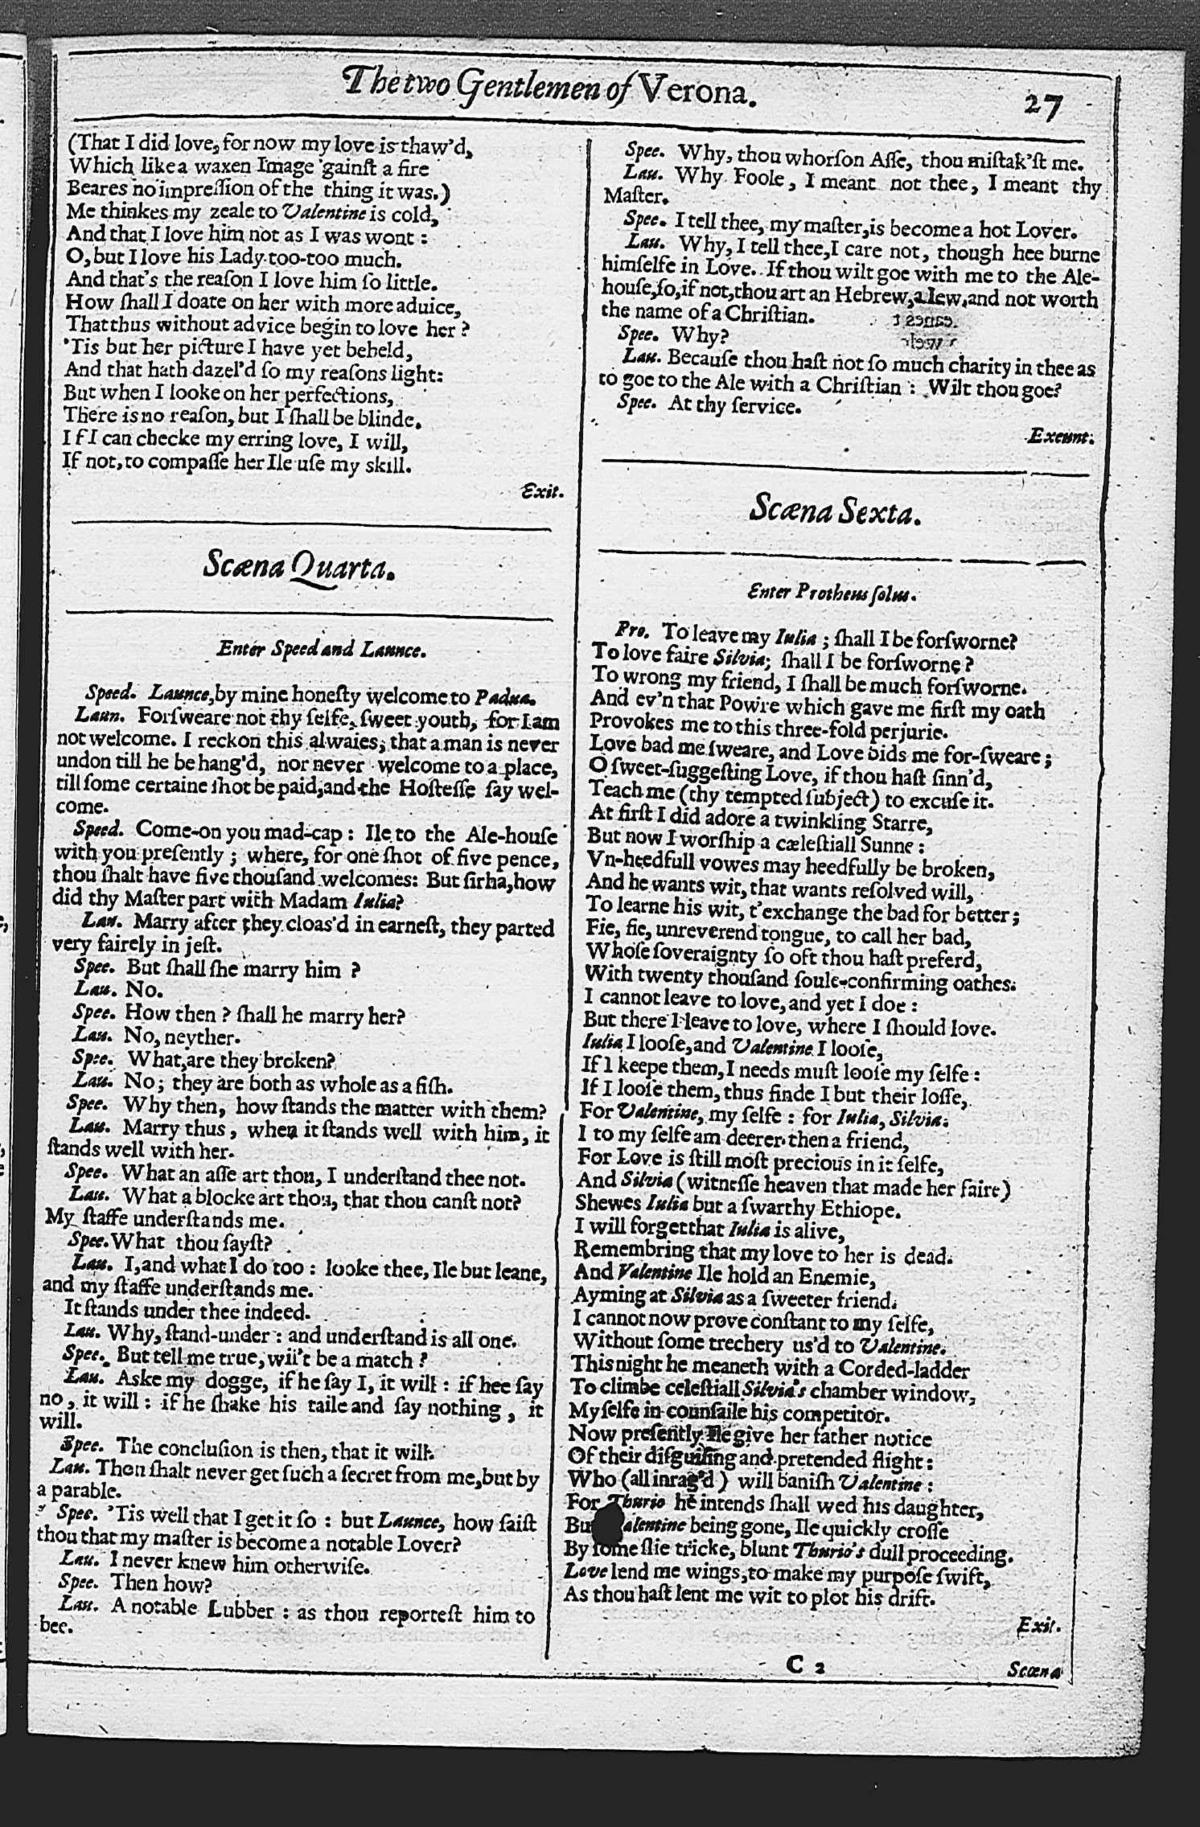 The two Gentlemen of Verona.
27
(That I did love, for now my love is thaw'd,
Which like a waxen Image 'gainſt a fire
Beares no impreſſion of the thing it was.)
Me thinkes my zeale to Valentine is cold,
And that I love him not as I was wont:
O, but I love his Lady too-too much.
And that's the reaſon I love him ſo little.
How ſhall I doate on her with more aduice,
That thus without advice begin to love her?
'Tis but her picture I have yet beheld,
And that hath dazel'd ſo my reaſons light:
But when I looke on her perfections,
There is no reaſon, but I ſhall be blinde.
If I can checke my erring love, I will,
If not, to compaſſe her Ile uſe my skill.
Exit.
Scæna Quarta.
Enter Speed and Launce.
Speed. Launce, by mine honeſty welcome to Padua.
Laun. Forſweare not thy ſelfe, ſweet youth, for I am
not welcome. I reckon this alwaies, that a man is never
undon till he be hang'd, nor never welcome to a place,
till ſome certaine ſhot be paid, and the Hoſteſſe ſay wel-
come.
Speed. Come-on you mad-cap: Ile to the Ale-houſe
with you preſently; where, for one ſhot of five pence,
thou ſhalt have five thouſand welcomes: But ſirha, how
did thy Maſter part with Madam Iulia?
Lau. Marry after they cloas'd in earneſt, they parted
very fairely in jeſt.
Spee. But ſhall ſhe marry him?
Lau. No.
Spee. How then? ſhall he marry her?
Lau. No, neyther.
Spee. What, are they broken?
Lau. No; they are both as whole as a fiſh.
Spee. Why then, how ſtands the matter with them?
Lau. Marry thus, when it ſtands well with him, it
ſtands well with her.
Spee. What an aſſe art thou, I underſtand thee not.
Lau. What a blocke art thou, that thou canſt not?
My ſtaffe underſtands me.
Spee. What thou ſayſt?
Lau. I, and what I do too: looke thee, Ile but leane,
and my ſtaffe underſtands me.
It ſtands under thee indeed.
Lau. Why, ſtand-under: and underſtand is all one.
Spee. But tell me true, wil't be a match?
Lau. Aske my dogge, if he ſay I, it will: if hee ſay
no, it will: if he ſhake his taile and ſay nothing, it
will.
Spee. The concluſion is then, that it will.
Lau. Thou ſhalt never get ſuch a ſecret from me, but by
a parable.
Spee. 'Tis well that I get it ſo: but Launce, how ſaiſt
thou that my maſter is become a notable Lover?
Lau. I never knew him otherwiſe.
Spee. Then how?
Lau. A notable Lubber: as thou reporteſt him to
bee.
Spee. Why, thou whorſon Aſſe, thou miſtak'ſt me.
Lau. Why Foole, I meant not thee, I meant thy
Maſter.
Spee. I tell thee, my maſter, is become a hot Lover.
Lau. Why, I tell thee, I care not, though hee burne
himſelfe in Love. If thou wilt goe with me to the Ale-
houſe, ſo, if not, thou art an Hebrew, a Iew, and not worth
the name of a Chriſtian.
Spee. Why?
Lau. Becauſe thou haſt not ſo much charity in thee as
to goe to the Ale with a Chriſtian: Wilt thou goe?
Spee. At thy ſervice.
Exeunt.
Scæna Sexta.
Enter Protheus ſolus.
Pro. To leave my Iulia; ſhall I be forſworne?
To love faire Silvia; ſhall I be forſworne?
To wrong my friend, I ſhall be much forſworne.
And ev'n that Powre which gave me firſt my oath
Provokes me to this three-fold perjurie.
Love bad me ſweare, and Love bids me for-ſweare;
O ſweet-ſuggeſting Love, if thou haſt ſinn'd,
Teach me (thy tempted ſubject) to excuſe it.
At firſt I did adore a twinkling Starre,
But now I worſhip a cæleſtiall Sunne:
Vn-heedfull vowes may heedfully be broken,
And he wants wit, that wants reſolved will,
To learne his wit, t'exchange the bad for better;
Fie, fie, unreverend tongue, to call her bad,
Whoſe ſoveraignty ſo oft thou haſt preferd,
With twenty thouſand ſoule-confirming oathes.
I cannot leave to love, and yet I doe:
But there I leave to love, where I ſhould love.
Iulia I looſe, and Valentine I looſe,
If I keepe them, I needs muſt looſe my ſelfe:
If I looſe them, thus finde I but their loſſe,
For Valentine, my ſelfe: for Iulia, Silvia.
I to my ſelfe am deerer then a friend,
For Love is ſtill moſt precious in it ſelfe,
And Silvia (witneſſe heaven that made her faire)
Shewes Iulia but a ſwarthy Ethiope.
I will forget that Iulia is alive,
Remembring that my love to her is dead.
And Valentine Ile hold an Enemie,
Ayming at Silvia as a ſweeter friend.
I cannot now prove conſtant to my ſelfe,
Without ſome trechery us'd to Valentine.
This night he meaneth with a Corded-ladder
To climbe celeſtiall Silvia's chamber window,
My ſelfe in counſaile his competitor.
Now preſently Ile give her father notice
Of their diſguiſing and pretended flight:
Who (all inrag'd) will baniſh Valentine:
For Thurio he intends ſhall wed his daughter,
Bu alentine being gone, Ile quickly croſſe
By ſome ſlie tricke, blunt Thurio's dull proceeding.
Love lend me wings, to make my purpoſe ſwift,
As thou haſt lent me wit to plot his drift.
Exit.
C 2
Scæna